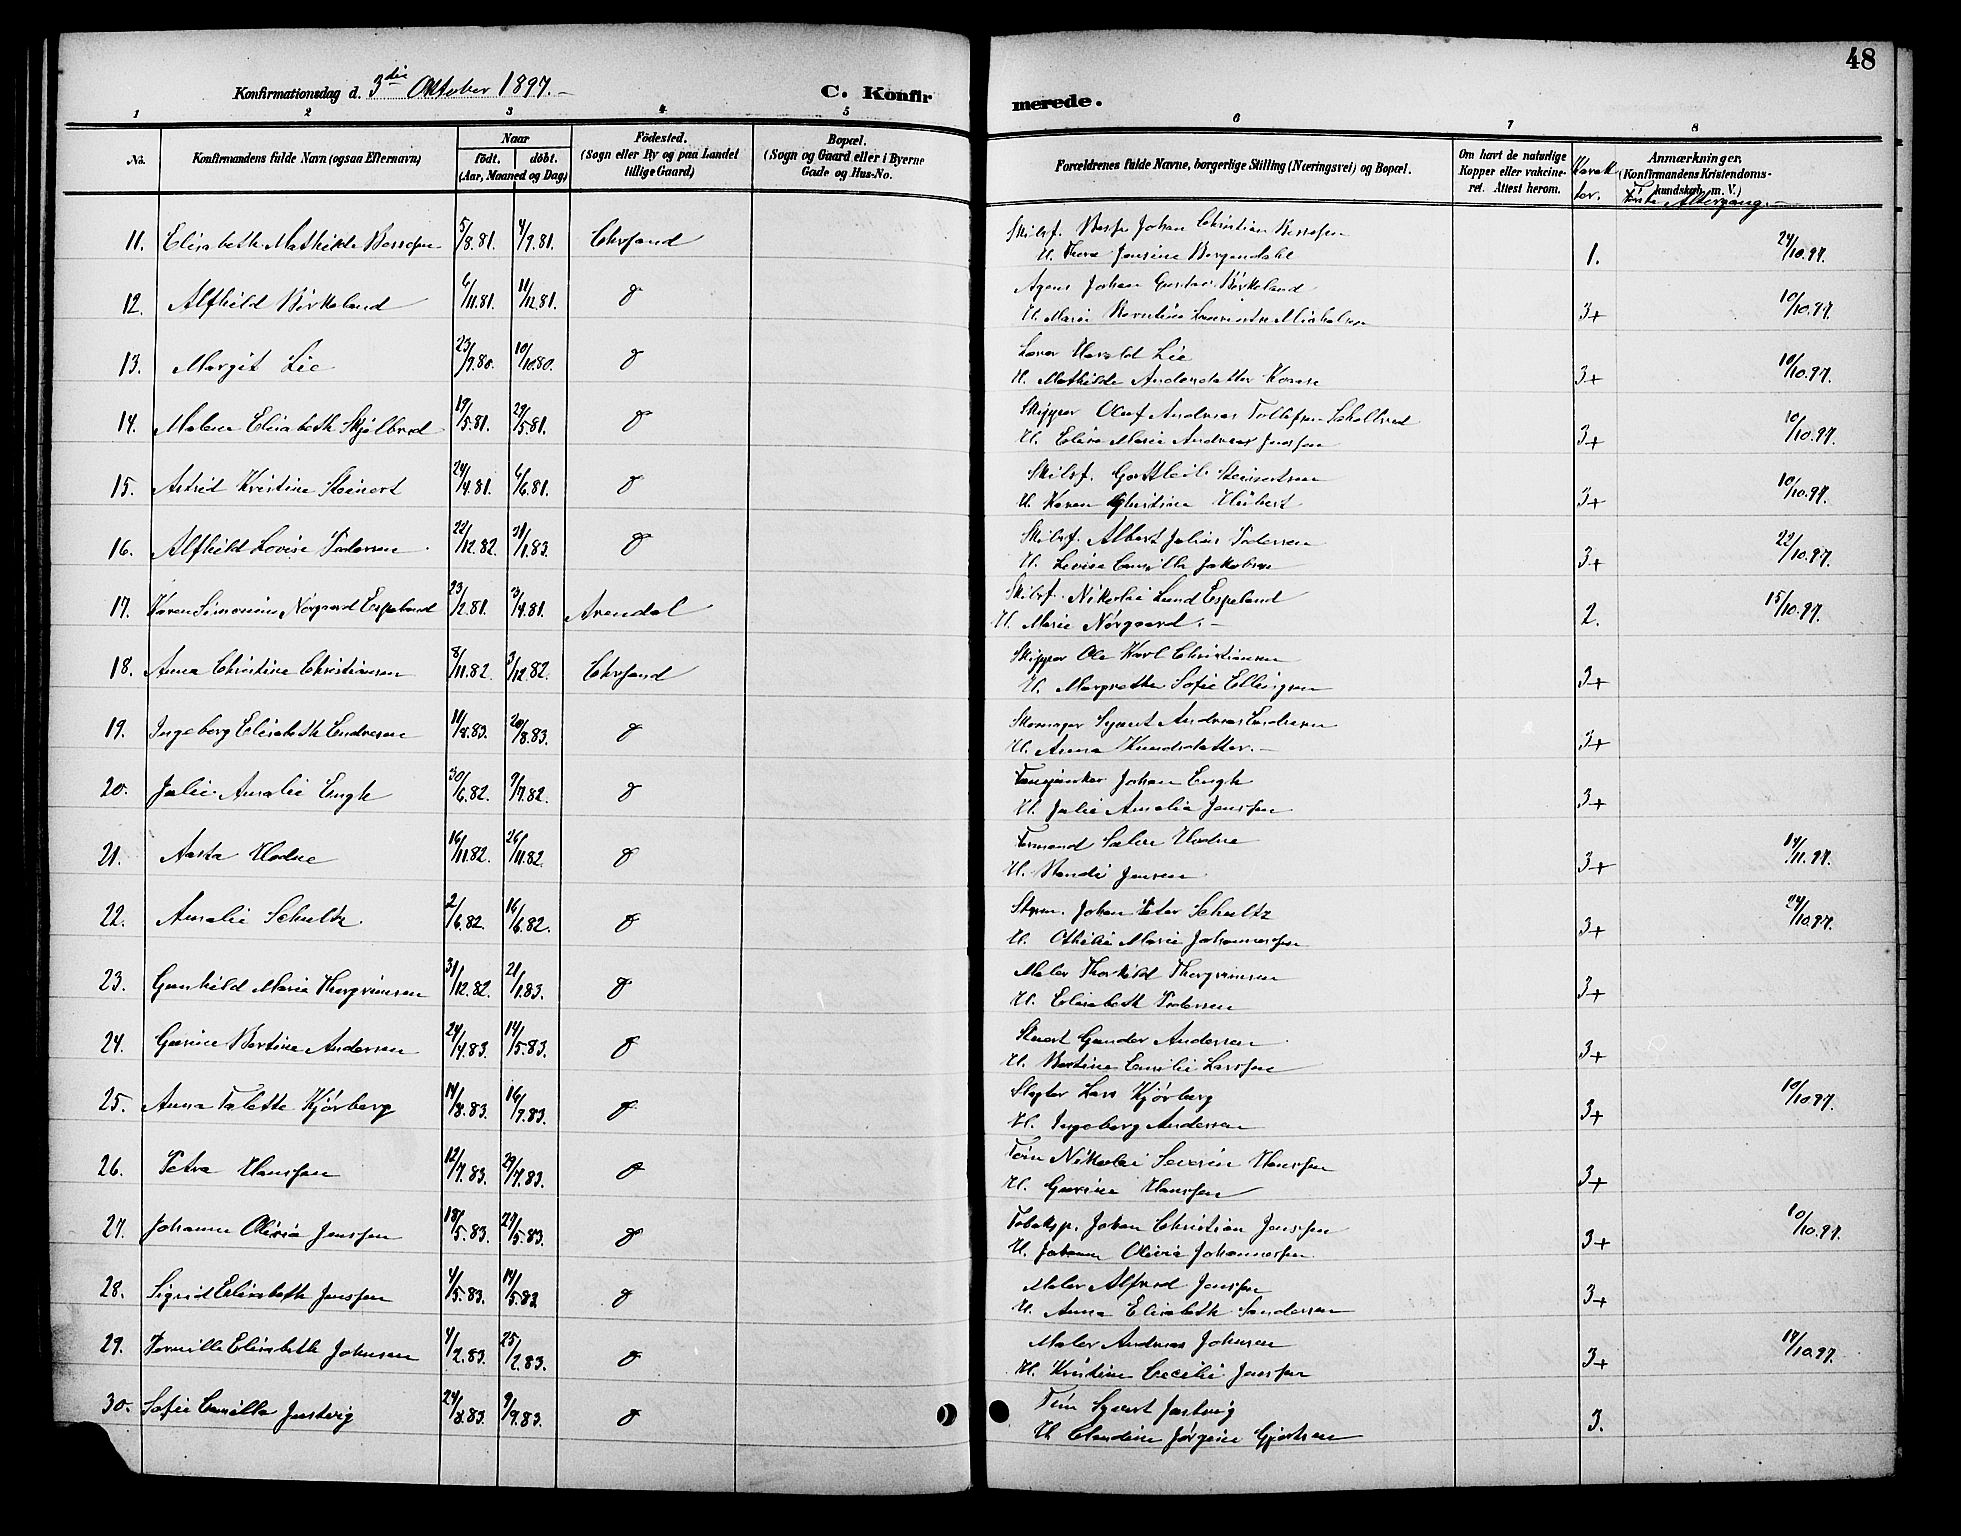 48
Konfirmationsdag d. 3die Oktober 1897.-
C. Konfirmerede.
1 2 3 4 5 6 7 8
No.
Konfirmandens fulde Navn (ogsaa Efternavn)
Naar født. døbt. (Aar, Maaned og Dag)
Fødested. (Sogn eller By og paa Landet tillige Gaard)
Bopæl. (Sogn og Gaard eller i Byerne Gade og Hus-No.
Forældrenes fulde Navne, borgerlige Stilling (Næringsvei) og Bopæl.
Om havt de naturlige Kopper eller vakcineret. Attest herom.
Karakter.
Anmærkninger, (Konfirmandens Kristendomskundskab m. V.)
Første Altergang.-
11. Elisabeth Mathilde Bessesen 5/8.81. 4/9.81. Chrsand Skibsf. Johan Christian Bessesen 1. 24/10.97.
H. Thora Jensine Bergendahl
12. Alfhild Birkeland 6/11.81. 11/12.81. do Agent Johan Gustav Birkeland 3+ 10/10.97.
H. Marie
13. Margit Lie 23/9.80. 10/10.80. do Lærer Harald Lie 3+ 10/10.97.
H. Mathilde Andersdatter
14. Malene Elisabeth Skjølbred 19/5.81. 29/5.81. do Skipper Oluf Andreas Tollefsen 3+ 10/10.97.
H. Elise Marie Andrea Jenssen
15. Astrid Kristine Steinert 24/4.81. 6/6.81. do Skibsf. 3+ 10/10.97.
H. Karen Christine Hübert
16. Alfhild Lovise Pedersen 22/12.82. 21/1.83. do Skibsf. Albert Julius Pedersen 3+ 22/10.97.
H. Lovise Camilla Jakobsen
17. Karen Simonine Norgaard Espeland 23/2.81. 3/4.81. Arendal Skibsf. Nikolai Lund Espeland 2. 15/10.97.
H. Marie Nørgaard.-
18. Anna Christine Christiansen 8/11.82. 3/12.82. Chrsand Skipper Ole Karl Christiansen 3+
H. Margrethe Sofie Ellingsen
19. Ingeborg Elisabeth Endresen 11/8.83. 20/8.83. do Skomager Syvert Andreas Endresen 3+
H. Anna Knudsdatter.-
20. Julie Amalie Engh 30/6.82. 9/7.82. do Johan Engh 3+
H. Julie Amalia Jenssen
21. Aasta Hodne 16/11.82. 26/11.82. do Formand Hodne 3+ 14/11.97.
H. Jensen
22. Amalie Schultz. 2/6.82. 16/6.82. do Styrm. Johan Peter Schultz 3+ 24/10.97.
H. Othilie Marie Johannessen
23. Gunhild Maria Thorgrimsen 31/12.82. 21/1.83. do Maler Thorkild Thorgrimsen 3+
H. Elisabeth Pedersen
24. Gusine Bertine Andersen 24/4.83. 14/5.83. do Stuert Gunder Andersen 3+
H. Bertine Emilie Larssen
25. Anna Talette Kjørberg 14/8.83. 16/9.83. do Slagter Lars Kjørberg 3+ 10/10.97.
H. Ingeborg Andersen
26. Petra Hanssen 12/7.83. 29/7.83. do Tøm Nikolai Severin Hanssen 3+
H. Hanssen
27. Johanne Olivia Jenssen 18/5.83. 27/5.83. do Tobaksp. Johan Christian Jenssen 3+ 10/10.97.
H. Johanne Olivia Johannessen
28. Sigrid Elisabeth Jenssen 4/5.83. 14/5.83 do Maler Alfred Jenssen 3+
H. Anna Elisabeth Sandersen
29. Pernille Elisabeth Johnsen 4/2.83. 25/2.83. do Maler Andreas Johnsen 3+ 17/10.97.
H. Kristine Cecilie Jenssen
30. Sofie Camilla Justvig 24/8.83. 9/9.83. do Tøm Syvert Justvig 3.
H. Claudine Jørgine Gjertsen